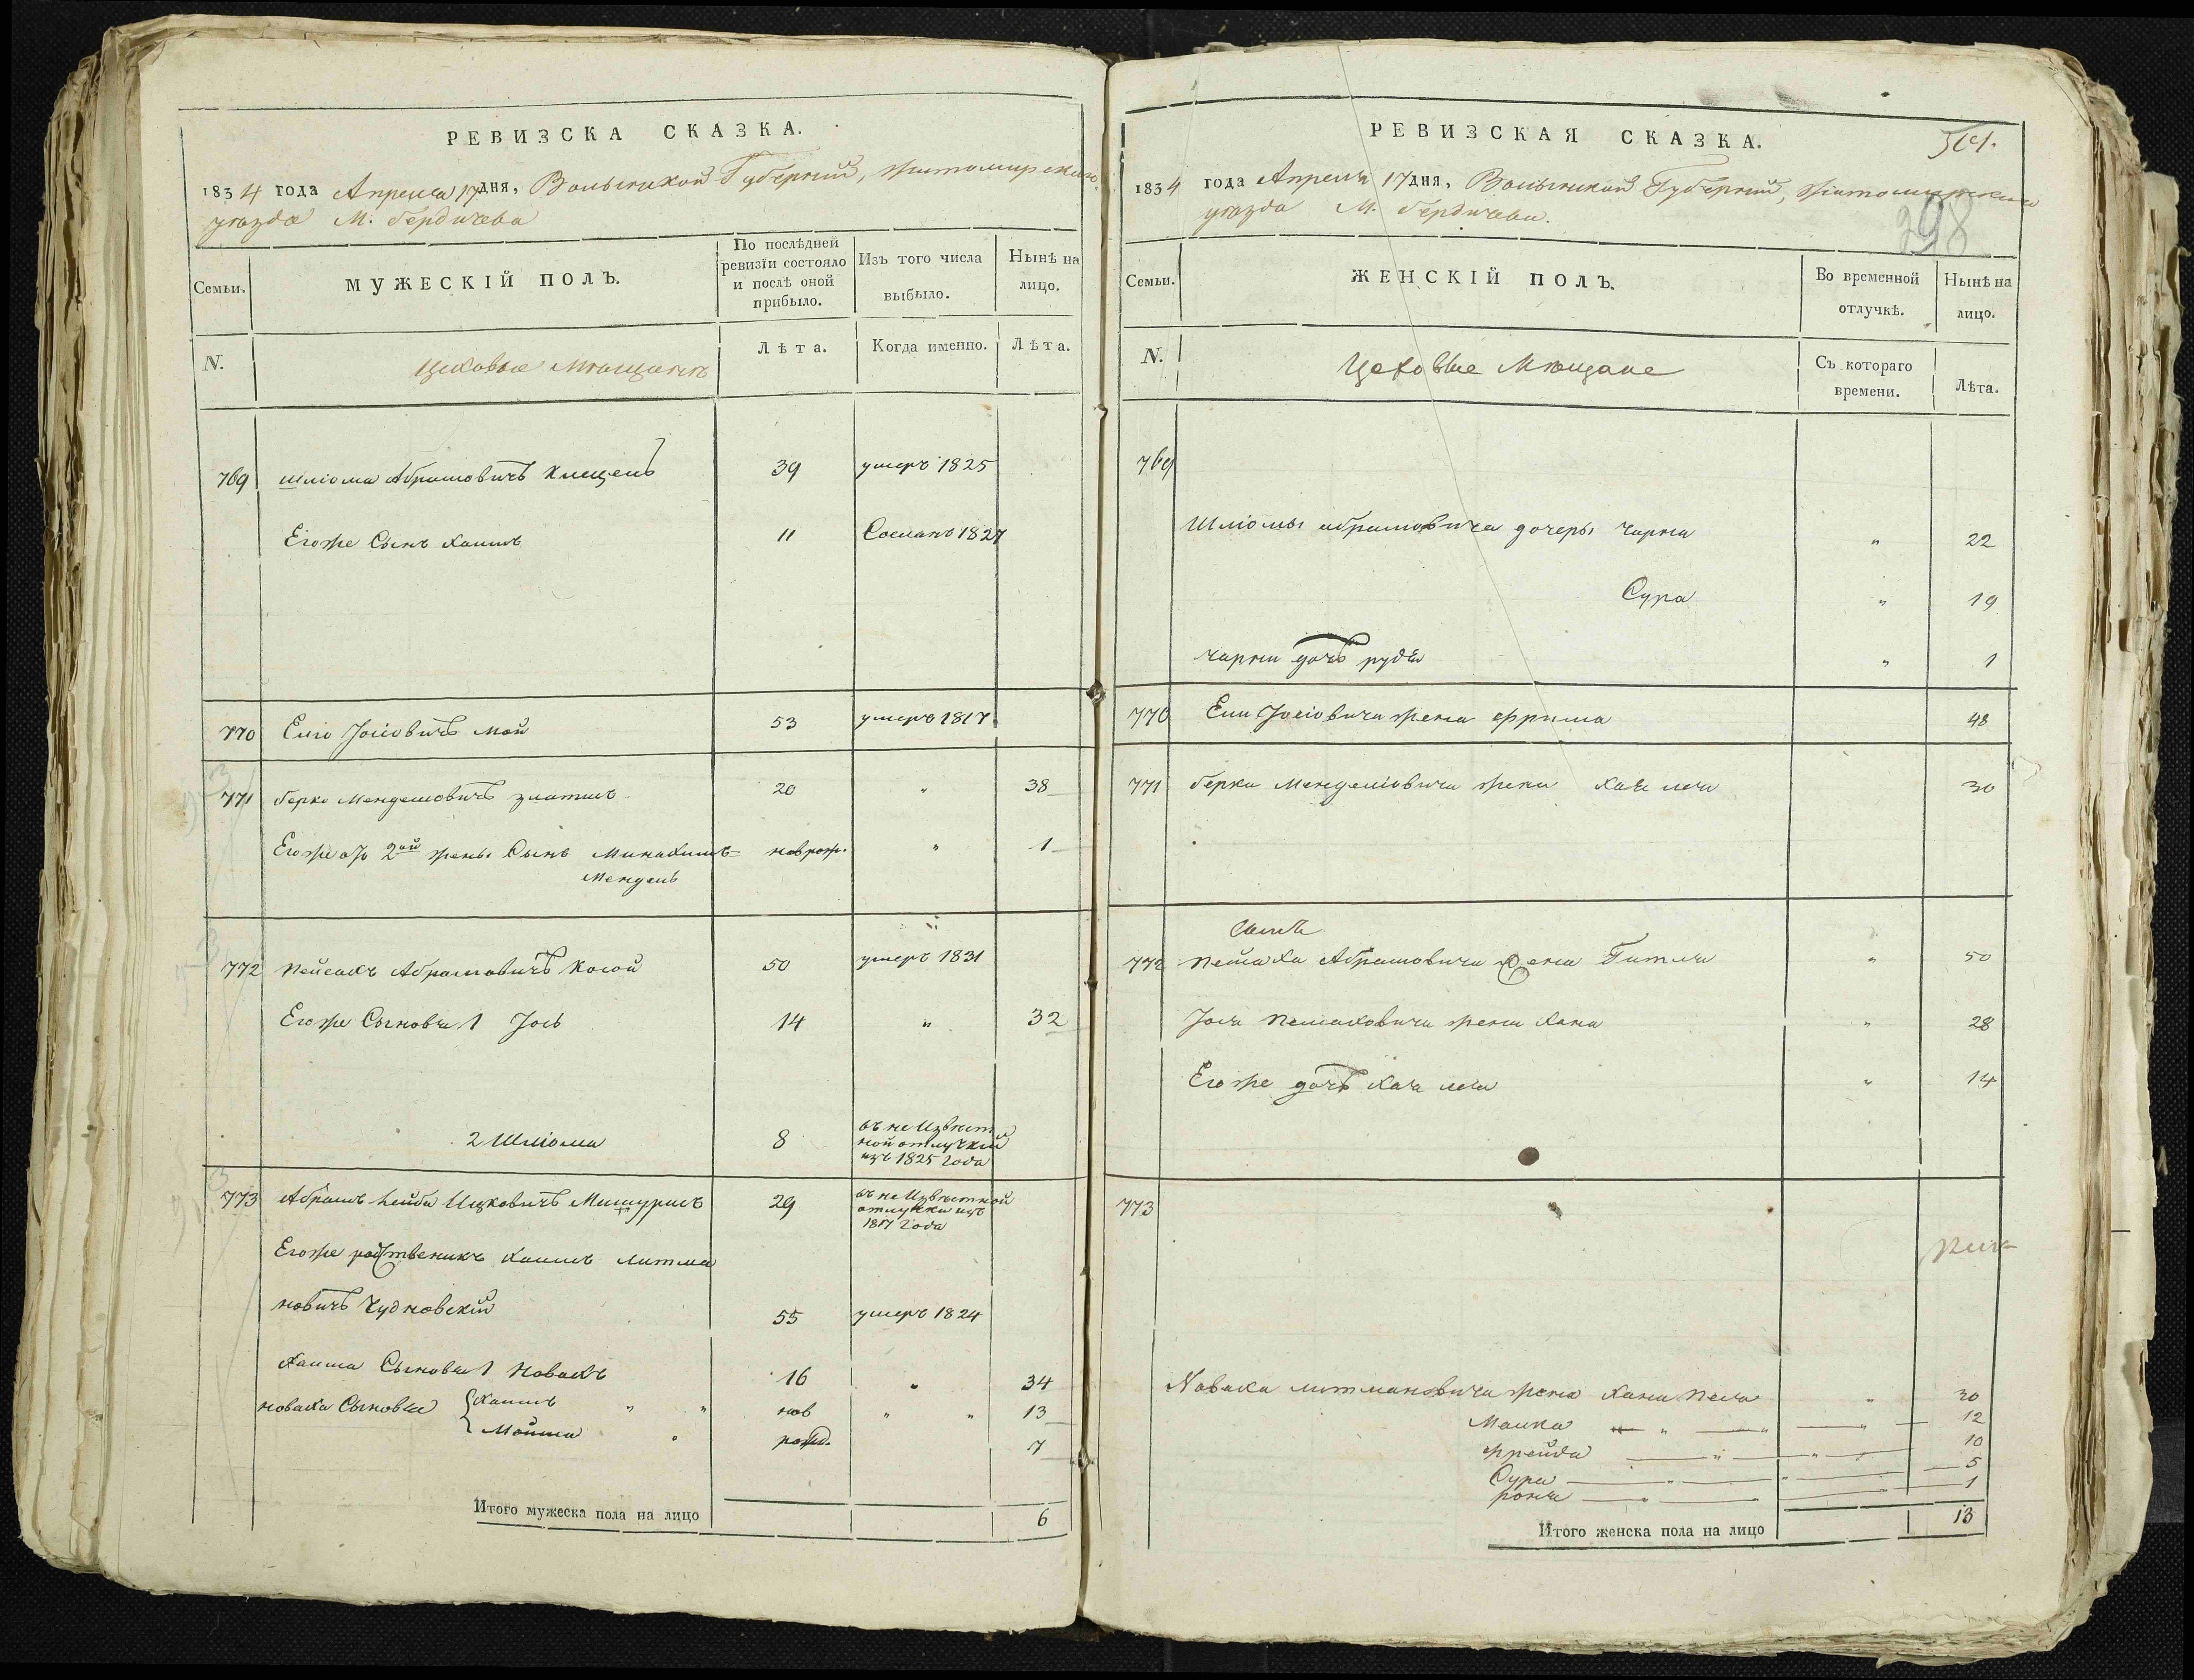 РЕВИЗСКА СКАЗКА.
1834 года Апреля 17 дня, Волынской Губернии, Житомирскаго
уезда М. Бердичева
Семьи.
МУЖЕСКІЙ ПОЛЪ.
По послѣдней ревизіи состояло и послѣ оной прибыло.
Изъ того числа выбыло.
Нынѣ на лицо.
N.
Цеховые Мещане
Лѣта.
Когда именно.
Лѣта.
769 Шліома Абрамовичъ Клещель 39 умеръ 1825
Егоже Сынъ Хаимъ 11 Сосланъ 1827
770 Еліо Іосіовичъ Мой 53 умеръ 1817
771 Берко Менделіовичъ 20 " 38
Егоже отъ 2ой жены Сынъ Минахимъ= новрож. " 1
Мендель
772 Пейсахъ Абрамовичъ Косой 50 умеръ 1831
Егоже Сыновья 1 Іось 14 " 32
2 Шліома 8 въ не Извѣст
ной отлучки
изъ 1825 Года
773 Абрамъ Лейба Ицковичъ Мишурисъ 29 въ не Извѣстной
отлучки изъ
1817 Года
Егоже родственикъ Хаимъ Литма
новичъ Чудновскій 55 умеръ 1824
Хаима Сыновья 1 Новахъ 16 " 34
Новаха Сыновья { Хаимъ " " нов " " 13
Мойша " рожд. 7
Итого мужеска пола на лицо 6
РЕВИЗСКАЯ СКАЗКА.
298
1834 года Апреля 17 дня, Волынской Губерніи, Житомирскаго
уезда М. Бердичева.
Семьи.
ЖЕНСКІЙ ПОЛЪ.
Во временной отлучкѣ.
Нынѣ на лицо.
N.
Цеховые Мещане
Съ котораго времени.
Лѣта.
769
Шліомы Абрамовича дочеры Чарна " 22
Сура " 19
Чарны дочь рудя " 1
770 Ели Іосіовича жена Фрима 48
771 Берка Менделіовича жена Хая леа 30
772 Пейсаха Абрамовича жена Гитля " 50
Іося Пейсаховича жена Хана " 28
Егоже дочь Хая леа " 14
773
Новаха литмановича жена Хана Песа " 30
Малка " " " 12
Фрейда " " " 10
Сура " " 5
роня " " 1
Итого женска пола на лицо 13